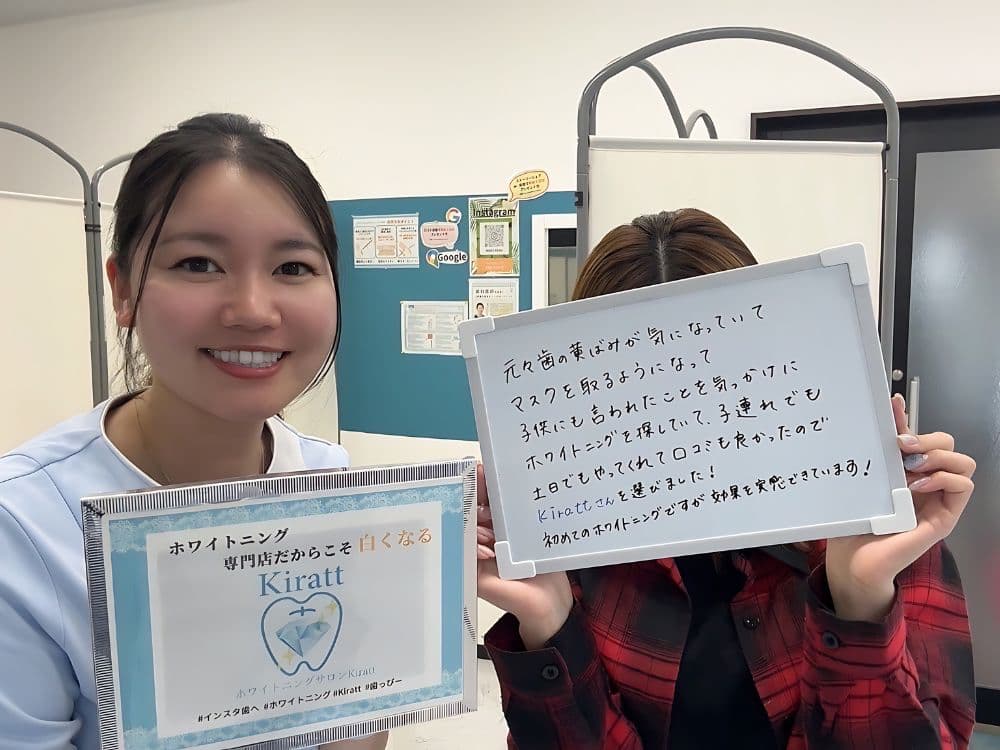 Instagram
Google
元々歯の黄ばみが気になっていて
マスクを取るようになって
子供にも言われたことを気っかけに
ホワイトニングを探していて、子連れでも
土日でもやってくれて口コミも良かったので
Kirattさんを選びました!
初めてのホワイトニングですが効果を実感できています!
ホワイトニング
専門店だからこそ 白くなる
Kiratt
ホワイトニングサロンKiratt
#インスタ歯へ #ホワイトニング #Kiratt #歯っぴー